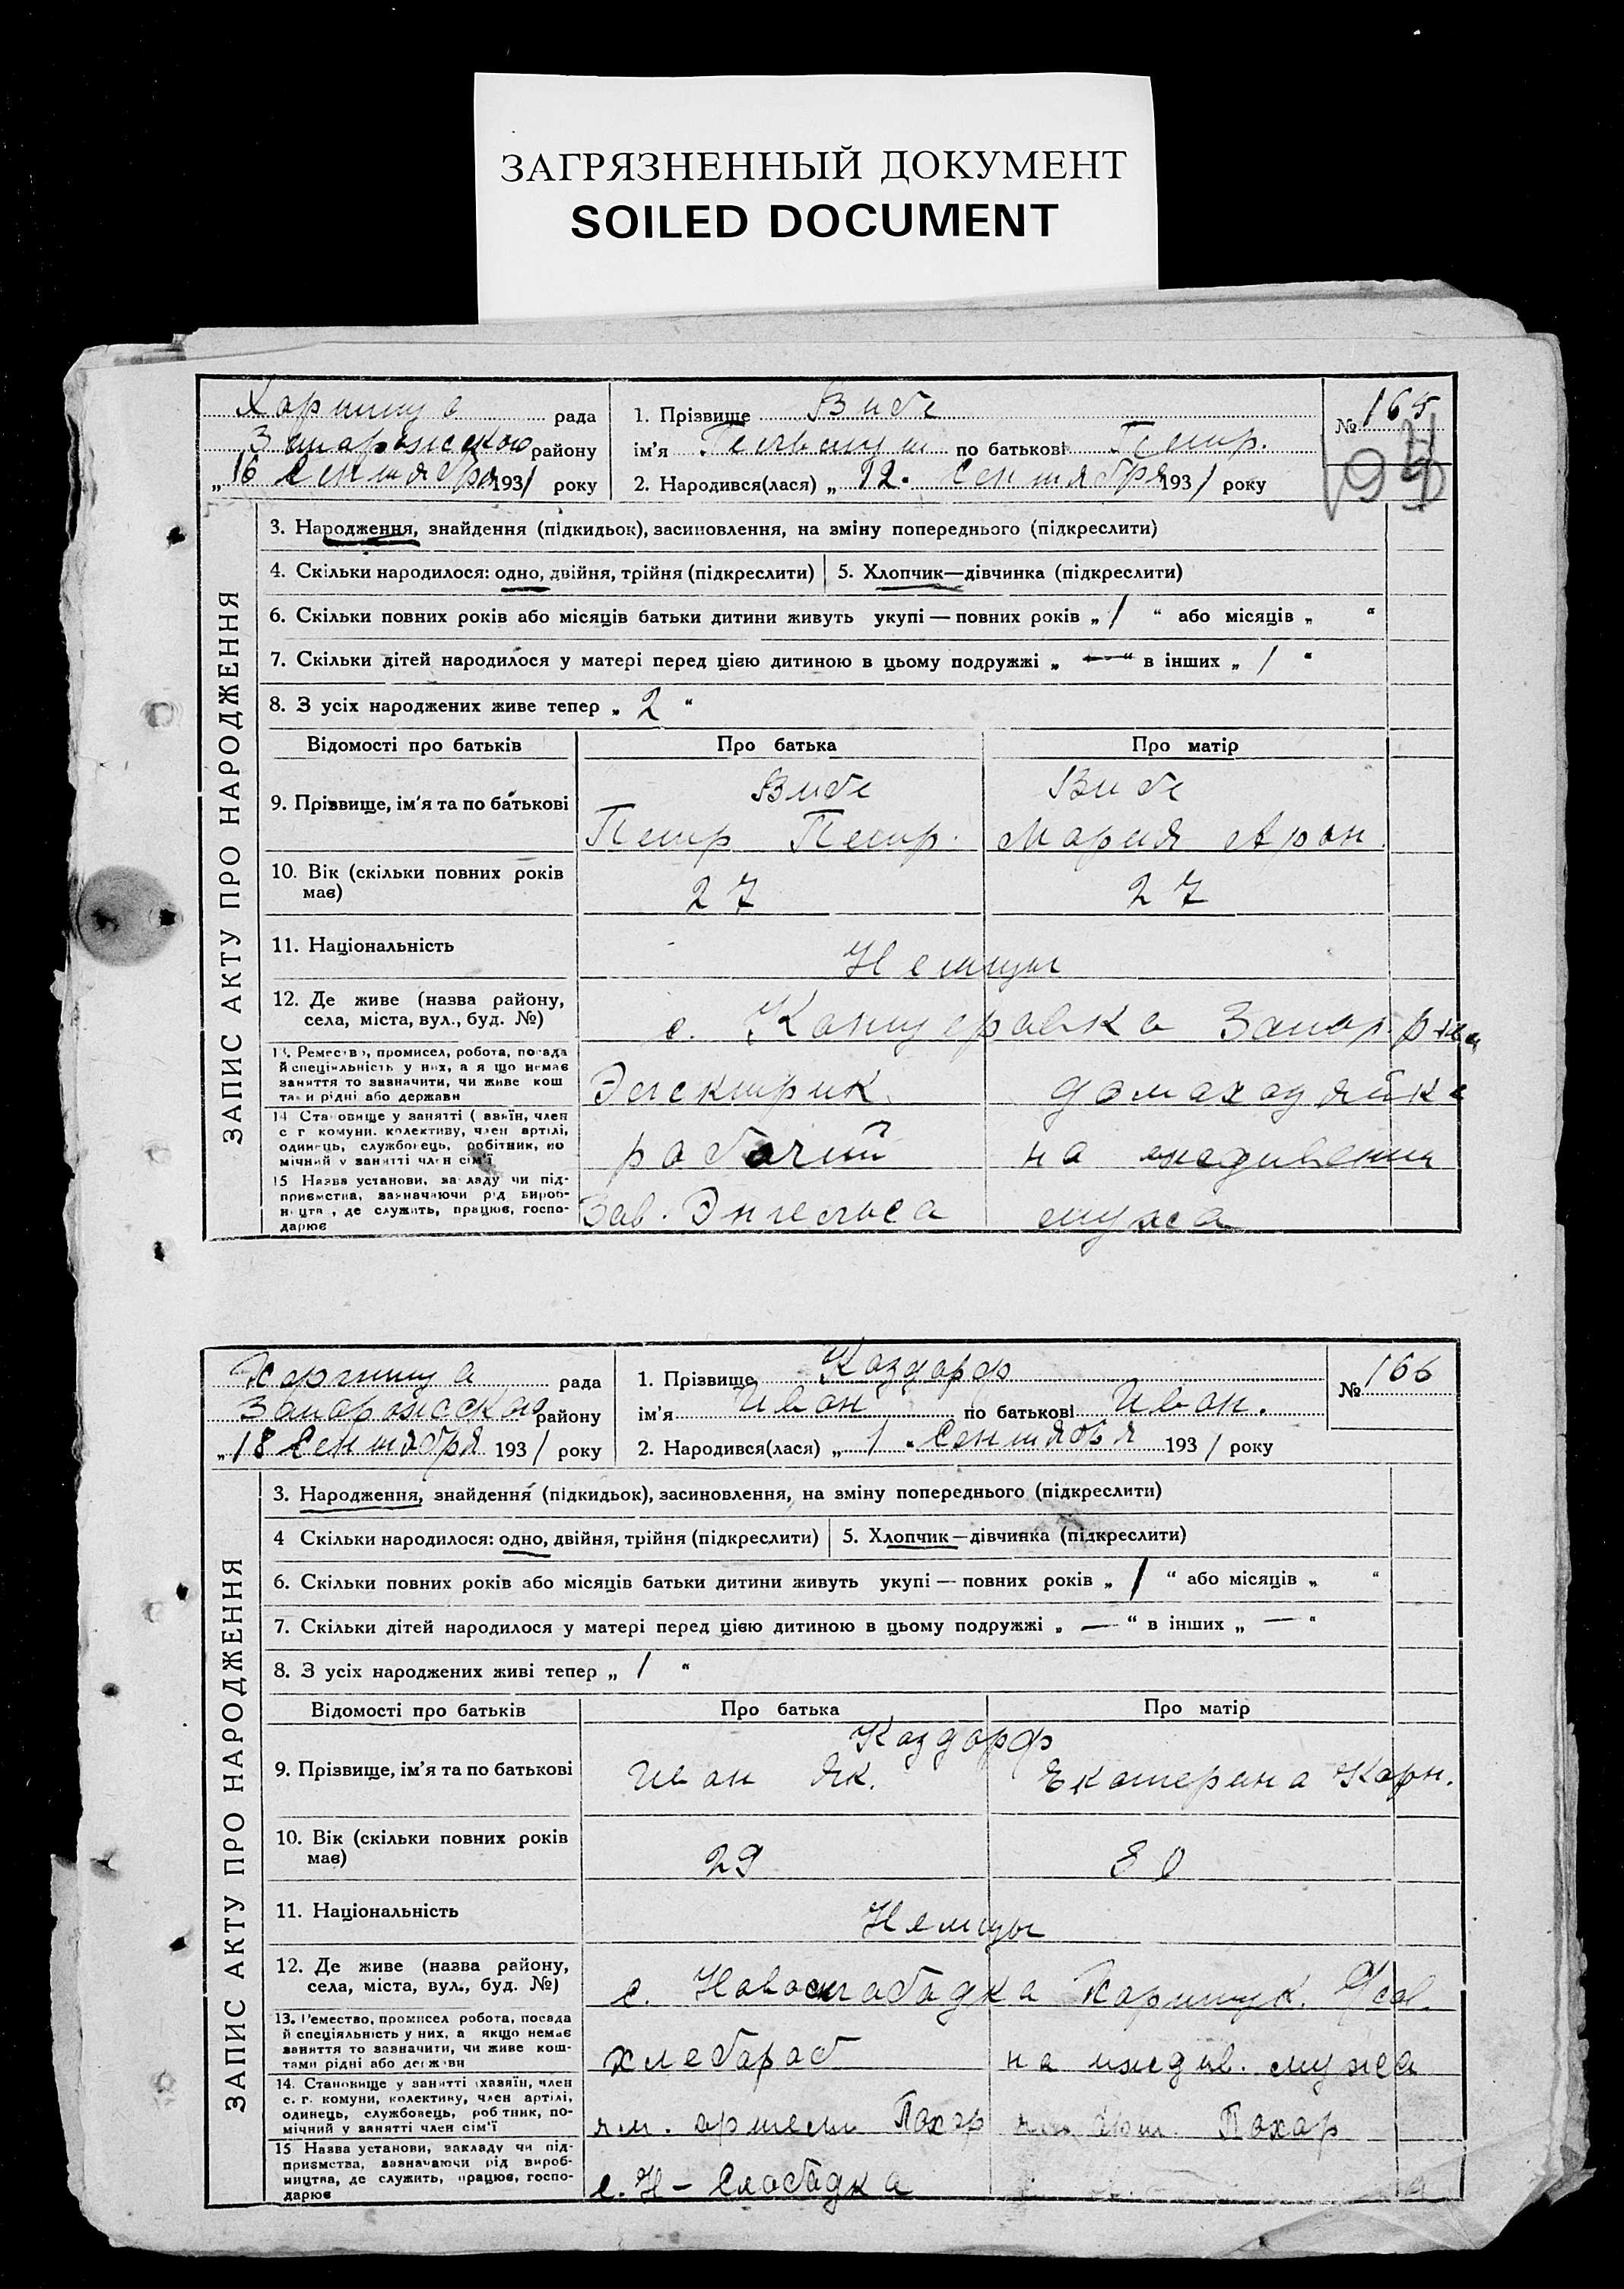 ЗАГРЯЗНЕННЫЙ ДОКУМЕНТ
SOILED DOCUMENT
рада
району
„16 Сентября 1931 року
1. Прізвище Вибе
ім'я по батькові Петр.
2. Народився(лася) „ 12. Сентября 1931 року
№ 165
ЗАПИС АКТУ ПРО НАРОДЖЕННЯ
3. Народження, знайдення (підкидьок), засиновлення, на зміну попереднього (підкреслити)
4. Скільки народилося: одно, двійня, трійня (підкреслити) 5. Хлопчик—дівчинка (підкреслити)
6. Скільки повних років або місяців батьки дитини живуть укупі — повних років „ 1 “ або місяців „ “
7. Скільки дітей народилося у матері перед цією дитиною в цьому подружжі „ — “ в інших „ 1 “
8. З усіх народжених живе тепер „ 2 “
Відомості про батьків Про батька Про матір
9. Прізвище, ім'я та по батькові
Вибе Вибе
Петр Петр. Мария Арон.
10. Вік (скільки повних років має) 27 27
11. Національність Немцы
12. Де живе (назва району, села, міста, вул., буд. №) с. Канцеровка Запор. р-на
13. Ремество, промисел, робота, посада
й спеціяльність у них, а якщо немає
заняття то зазначити, чи живе кош
тами рідні або держави
Электрик домохозяйка
14 Становище у занятті (хазяїн, член
с г комуни, колективу, член артілі,
одинець, службовець, робітник, по
мічний у занятті член сім'ї
рабочий на иждивении
15 Назва установи, закладу чи під-
приємства, зазначаючи рід вироб-
ництва, де служить, працює, госпо-
дарює
Зав. Энгельса мужа
рада
району
„18 Сентября 1931 року
1. Прізвище Каздорф
ім'я Иван по батькові Иван.
2. Народився(лася) „ 1 “ Сентября 1931 року
№ 166
ЗАПИС АКТУ ПРО НАРОДЖЕННЯ
3. Народження, знайдення (підкидьок), засиновлення, на зміну попереднього (підкреслити)
4 Скільки народилося: одно, двійня, трійня (підкреслити) 5. Хлопчик—дівчинка (підкреслити)
6. Скільки повних років або місяців батьки дитини живуть укупі — повних років „ 1 “ або місяців „ “
7. Скільки дітей народилося у матері перед цією дитиною в цьому подружжі „ — “ в інших „ — “
8. З усіх народжених живі тепер „ 1 “
Відомості про батьків Про батька Про матір
Каздорф
9. Прізвище, ім'я та по батькові Иван Як. Екатерина Корн.
10. Вік (скільки повних років має) 29 30
11. Національність Немцы
12. Де живе (назва району, села, міста, вул., буд. №) с. Новослободка
13. Ремество, промисел робота, посада
й спеціяльність у них, а якщо немає
заняття то зазначити, чи живе кош-
тами рідні або держави
хлебороб на иждив. мужа
14. Становище у занятті (хазяїн, член
с. г. комуни, колективу, член артілі,
одинець, службовець, робітник, по-
мічний у занятті член сім'ї
чл. артели Пахар чл. арт. Пахар
15 Назва установи, закладу чи під-
приємства, зазначаючи рід вироб-
ництва, де служить, працює, госпо-
дарює
с. Н-Слободка